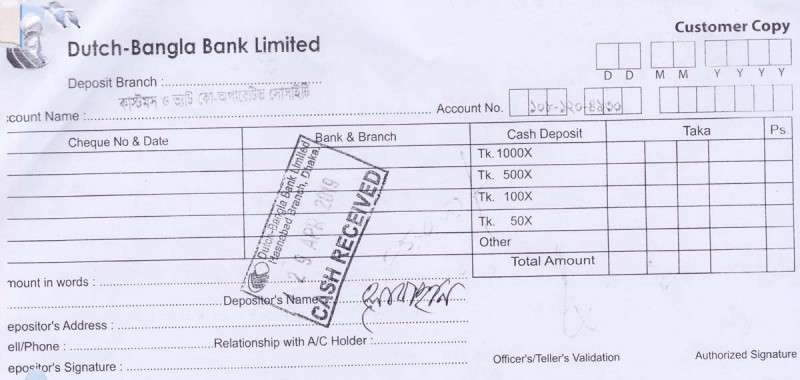 Customer Copy
Dutch-Bangla Bank Limited
D D M M Y Y Y Y
Deposit Branch :
কাস্টমস ও ভ্যাট কো-অপারেটিভ সোসাইটি
ccount Name : Account No. ১০৮-১২০-৪৯৩০
Cheque No & Date Bank & Branch Cash Deposit Taka Ps.
Tk. 1000X
Tk. 500X
Tk. 100X
Tk. 50X
Other
Total Amount
Dutch-Bangla Bank Limited
Hasnabad Branch, Dhaka
2 9 APR 2019
CASH RECEIVED
mount in words :
Depositor's Name
epositor's Address :
ell/Phone : Relationship with A/C Holder :
epositor's Signature : Officer's/Teller's Validation Authorized Signature